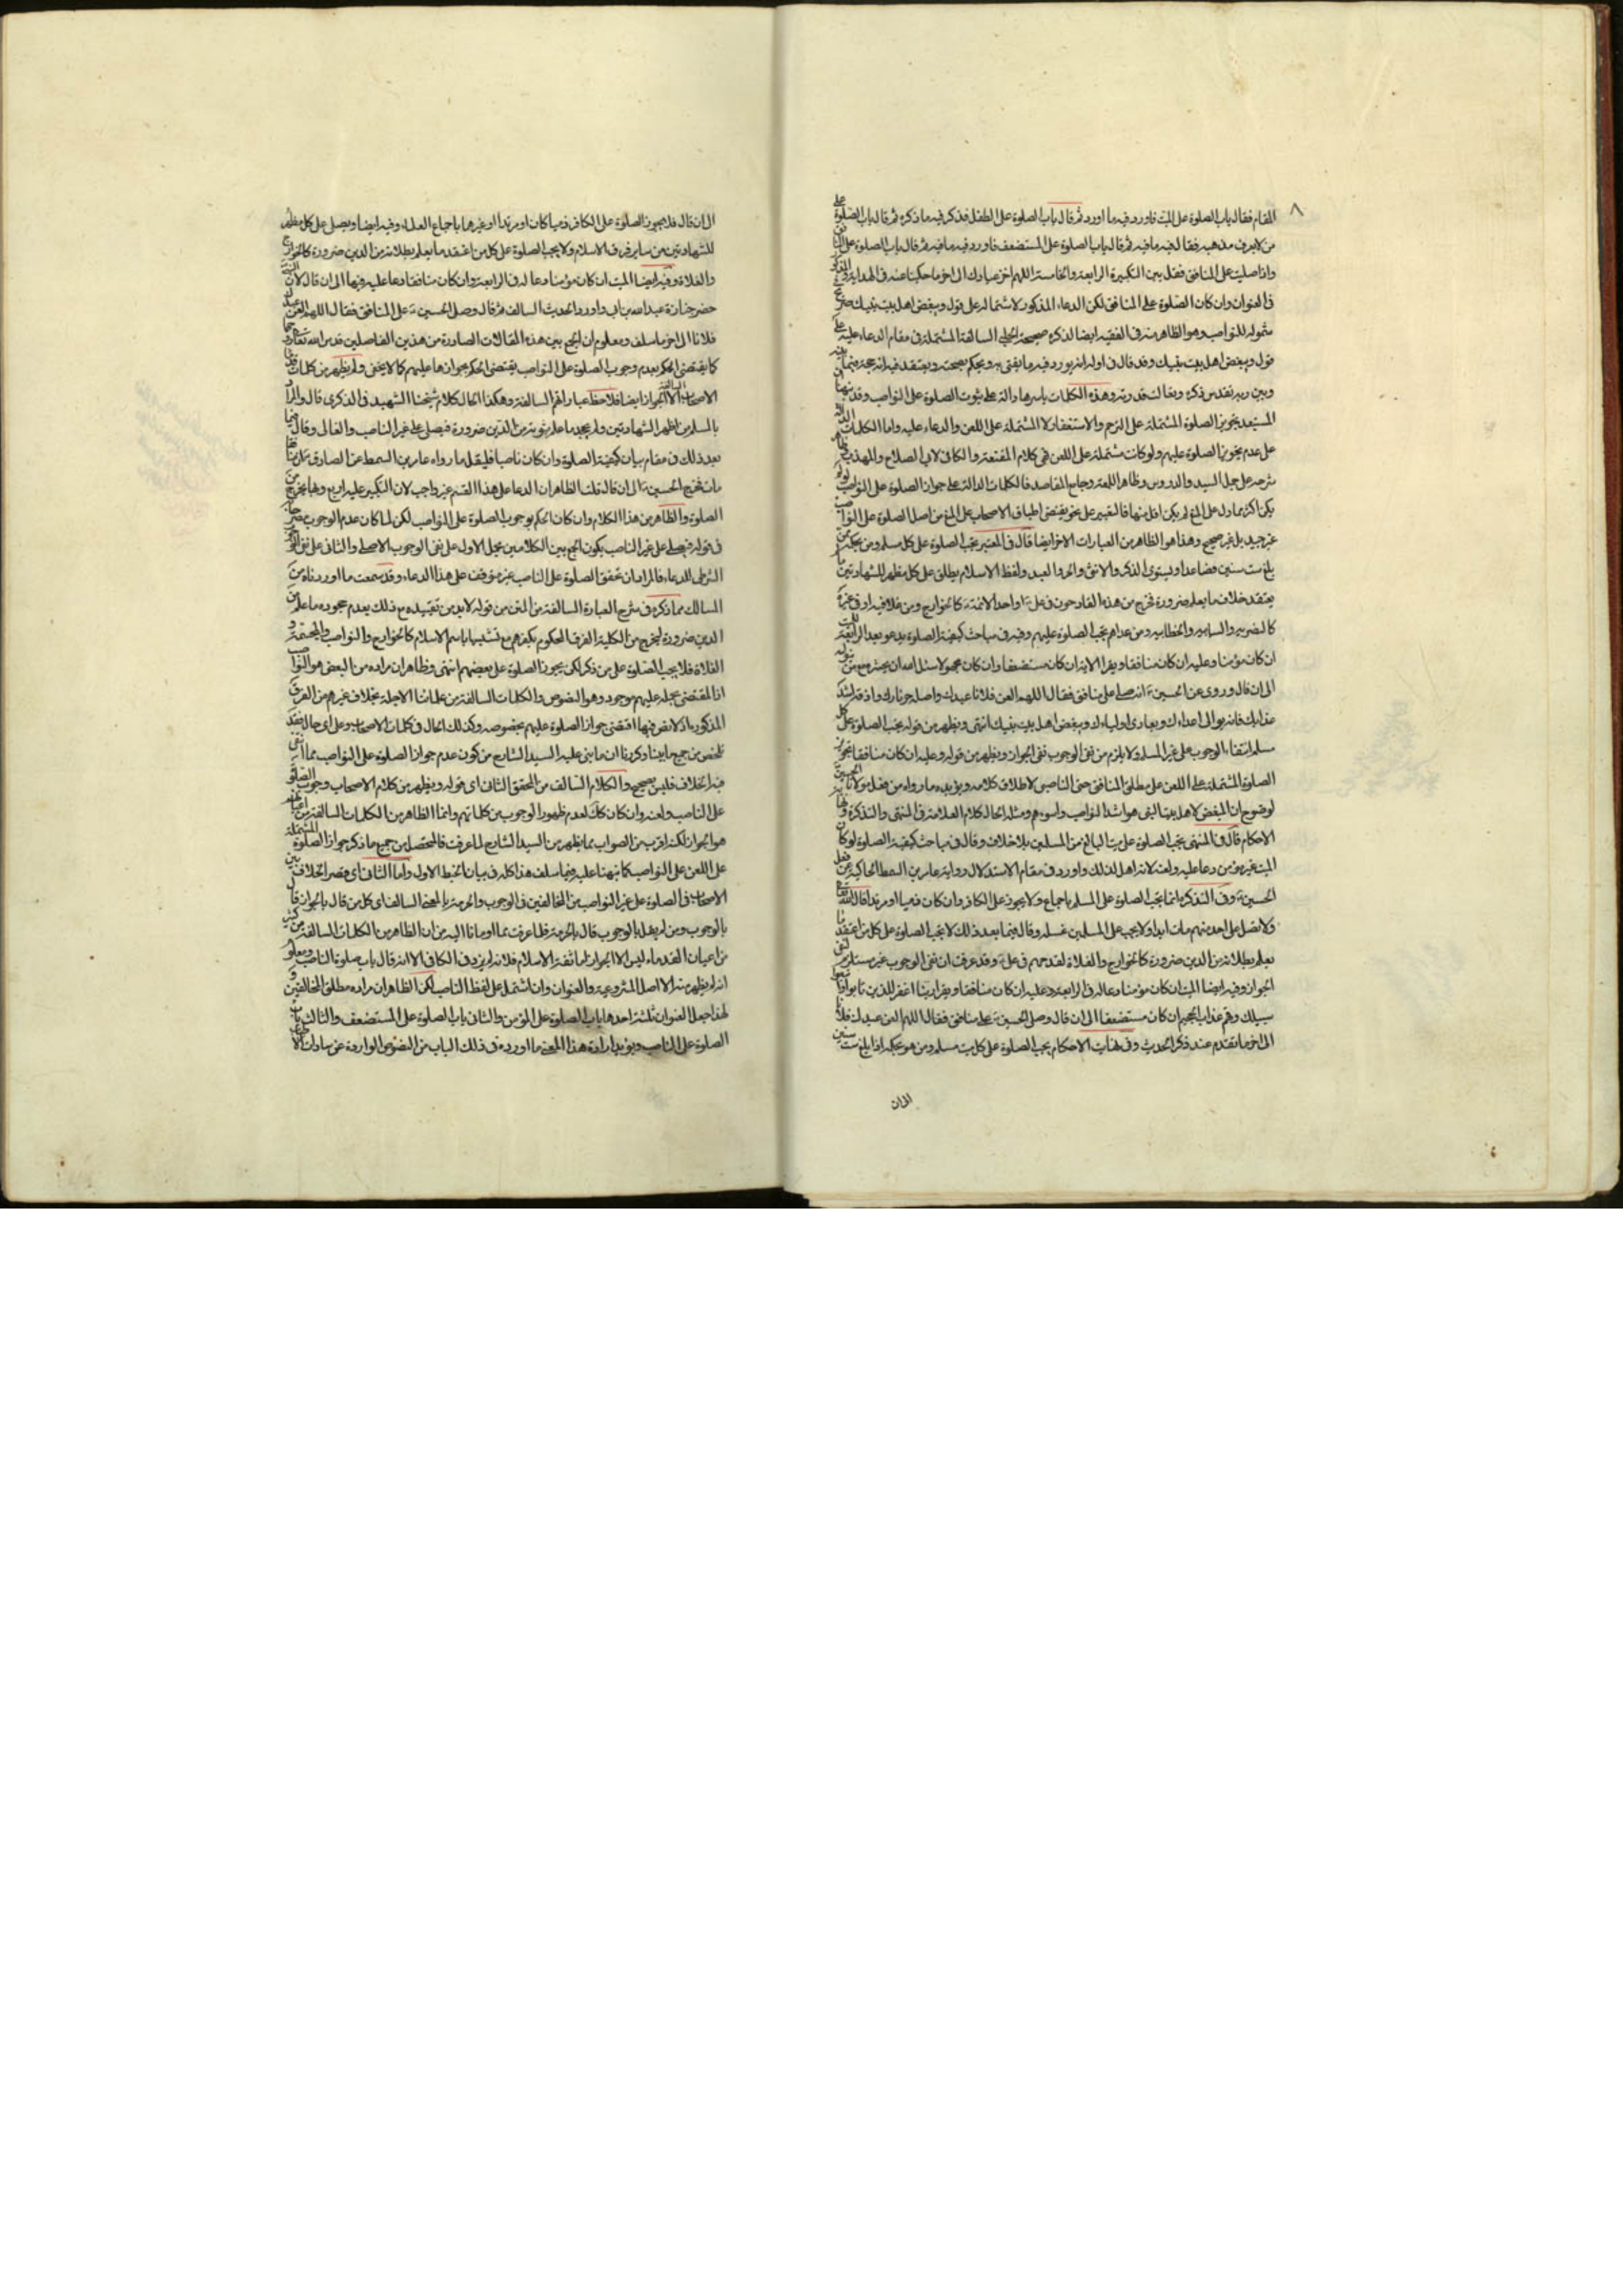 ٨
المقام فقال باب الصلوة على الميت فاورد فيه ما اورد ثم قال باب الصلوة على الطفل فذكر فيه ما ذكره ثم قال باب الصلوة على
من لا يعرف مذهبه فقال فيه ما فيه ثم قال باب الصلوة على المستضعف فاورد فيه ما فيه ثم قال باب الصلوة على
واذا صليت على المنافق فقل بين التكبيرة الرابعة والخامسة اللهم اخز عبادك الى اخر ما حكينا عنه في الهداية
في العنوان وان كان الصلوة على المنافق لكن الدعاء المذكور لاشتماله على قوله ويبغض اهل بيت نبيك صريح
شموله للنواصب وهو الظاهر منه في الفقيه ايضا لذكره صحيحة الحلبي السالفة المشتملة في مقام الدعاء عليه على
قوله ويبغض اهل بيت نبيك وقد قال في اوله انه يورد فيه ما يفتي به ويحكم بصحته ويعتقد فيه انه حجة فيما بينه
وبين ربه تقدس ذكره وتعالت قدرته وهذه الكلمات باسرها دالة على ثبوت الصلوة على النواصب وقد
المستبعد تجويز الصلوة المشتملة على الترحم والاستغفار لا المشتملة على اللعن والدعاء عليه واما الكلمات الدالة
على عدم تجويز الصلوة عليهم ولو كانت مشتملة على اللعن فهي كلام المقنعة والكافي لابي الصلاح والمهذب
شرحه على جمل السيد والدروس وظاهر اللمعة وجامع المقاصد فالكلمات الدالة على جواز الصلوة على النواصب لو لم
يكن اكثر مما دل على المنع لم يكن اقل منها فالتعبير على نحو يقتضي اطباق الاصحاب على المنع من اصل الصلوة على النواصب
غير جيد بل غير صحيح وهذا هو الظاهر من العبارات الاخر ايضا قال في المعتبر تجب الصلوة على كل مسلم ومن بحكمه ممن
بلغ ست سنين فصاعدا ويستوي الذكر والانثى والحر والعبد ولفظ الاسلام يطلق على كل مظهر للشهادتين ما لم
يعتقد خلاف ما يعلم ضرورة فخرج من هذه القادحون في علي ع او احد الائمة ع كالخوارج ومن غلا فيه او في غيره
كالنصيريه والسابيه والخطابيه ومن عداهم تجب الصلوة عليهم وفيه في مباحث كيفية الصلوة يدعو بعد الرابعة للميت
ان كان مؤمنا وعليه ان كان منافقا ويقرا الاية ان كان مستضعفا وان كان مجهولا سئل الله ان يحشره مع من يتوله
الى ان قال وروى عن الحسين ع انه صلى على منافق فقال اللهم العن فلانا عبدك واصله حر نارك واذقه اشد
عذابك فانه يوالي اعداءك ويعادي اولياءك ويبغض اهل بيت نبيك انتهى ويظهر من قوله تجب الصلوة على كل
مسلم انتفاء الوجوب على غير المسلم ولا يلزم من نفي الوجوب نفي الجواز ويظهر من قوله وعليه ان كان منافقا تجويز
الصلوة المشتملة على اللعن على مطلق المنافق حتى الناصبي لاطلاق كلامه ويؤيده ما رواه من فعل مولانا الحسين
لوضوح ان المبغض لاهل بيت النبي هو اشد النواصب واسوءهم ومثله الحال كلام العلامة في المنتهى والتذكرة ونهاية
الاحكام قال في المنتهى تجب الصلوة على ميت البالغ من المسلمين بلا خلاف وقال في مباحث كيفية الصلوة لو كان
الميت غير مؤمن دعا عليه ولعنه لانه اهل لذلك واورد في مقام الاستدلال رواية عامر بن السمط الحاكية عن فعل
الحسين ع وفي التذكرة انما تجب الصلوة على المسلم باجماع ولا يجوز على الكافر وان كان ذميا او مرتدا قال الله تعالى
ولا تصل على احد منهم مات ابدا ولا يجب على المسلمين غسله وقال فيما بعد ذلك لا تجب الصلوة على كل من اعتقد ما
يعلم بطلانه من الدين ضرورة كالخوارج والغلاة لقدحهم في علي ع وقد عرفت ان نفي الوجوب غير مستلزم لنفي
الجواز وفيه ايضا الميت ان كان مؤمنا دعا له في الرابعة وعليه ان كان منافقا ويقرا ربنا اغفر للذين تابوا واتبعوا
سبيلك وقهم عذاب الجحيم ان كان مستضعفا الى ان قال وصلى الحسين ع على منافق فقال اللهم العن عبدك فلانا
الى اخر ما تقدم عند ذكر الحديث وفي نهاية الاحكام يجب الصلوة على كل ميت مسلم ومن هو بحكمه اذا بلغ ست سنين
الى ان
الى ان قال فلا يجوز الصلوة على الكافر ذميا كان او مرتدا او غيرهما باجماع العلماء وفيه ايضا ويصلى على كل مظهر
للشهادتين من ساير فرق الاسلام ولا يجب الصلوة على كل من اعتقد ما يعلم بطلانه من الدين ضرورة كالخوارج
والغلاة وفيه ايضا الميت ان كان مؤمنا دعا له في الرابعة وان كان منافقا دعا عليه فيها الى ان قال لان النبي
حضر جنازة عبد الله بن ابي واورد الحديث السالف ثم قال وصلى الحسين ع على المنافق فقال اللهم العن عبدك
فلانا الى اخر ما سلف ومعلوم ان الجمع بين هذه المقالات الصادرة من هذين الفاضلين قدس الله تعالى روحهما
كما يقتضي الحكم بعدم وجوب الصلوة على النواصب يقتضي الحكم بجوازها عليهم كما لا يخفى ولم يظهر من كلمات قدماء
الاصحاب السالفة الا الجواز ايضا فلاحظ عباراتهم السالفة وهكذا الحال كلام شيخنا الشهيد في الذكرى قال والمراد
بالمسلم من اظهر الشهادتين ولم يجحد ما علم ثبوته من الدين ضرورة فيصلى على غير الناصب والغالي وقال فيما
بعد ذلك في مقام بيان كيفية الصلوة وان كان ناصبا فليقل ما رواه عامر بن السمط عن الصادق ع ان منافقا
مات فخرج الحسين ع الى ان قال قلت الظاهر ان الدعاء على هذا القسم غير واجب لان التكبير عليه اربع وبها يخرج من
الصلوة والظاهر من هذا الكلام وان كان الحكم بوجوب الصلوة على النواصب لكن لما كان عدم الوجوب صريحا
في قوله فيصلى على غير الناصب يكون الجمع بين الكلامين بحمل الاول على نفي الوجوب الاصلي والثاني على نفي الوجوب
الشرطي للدعاء فالمراد ان تحقق الصلوة على الناصب غير موقوف على هذا الدعاء وقد سمعت ما اوردناه من
المسالك مما ذكره في شرح العبارة السالفة من المتن من قوله لابد من تقييده مع ذلك بعدم جحوده ما علم من
الدين ضرورة ليخرج من الكلية الفرق المحكوم بكفرهم مع تشبثها باسم الاسلام كالخوارج والنواصب والمجسمة و
الغلاة فلا يجب الصلوة على من ذكر لكن يجوز الصلوة على بعضهم انتهى وظاهر ان مراده من البعض هو النواصب
اذ المقتضي بحمله عليهم موجود وهو النصوص والكلمات السالفة من علمائنا الاجلة بخلاف غيرهم من الفرق
المذكورة اذ لا نص فيها اقتضى جواز الصلوة عليهم بخصوصه وكذلك الحال في كلمات الاصحاب وعلى اي حال فقد
تلخص من جميع ما بينا وذكرنا ان ما بنى عليه السيد الشارح من كون عدم جواز الصلوة على النواصب مما انتفى
فيه الخلاف فليس بصحيح والكلام السالف من المحقق الثاني اي قوله ويظهر من كلام الاصحاب وجوب الصلوة
على الناصب ولعنه وان كان كك لعدم ظهور الوجوب من كلماتهم وانما الظاهر من الكلمات السالفة من اعيانهم
هو الجواز لكنه اقرب من الصواب مما يظهر من السيد الشارح لما عرفت فالمتحصل من جميع ما ذكر جواز الصلوة المشتملة
على اللعن على النواصب كما نبهنا عليه فيما سلف هذا كله في بيان الخبط الاول واما الثاني اي قصر الخلاف بين
الاصحاب في الصلوة على غير النواصب من المخالفين في الوجوب والحرمة بالمعنى السالف اي كل من قال بالجواز قال
بالوجوب ومن لم يقل بالوجوب قال بالحرمة فلما عرفت مما اومانا اليه من ان الظاهر من الكلمات السالفة من كثير
من اعيان القدماء ليس الا الجواز اما ثقة الاسلام فلانه لم يزد في الكافي الا انه قال باب صلوة الناصب ومعلوم
انه لم يظهر منه الا اصل المشروعية والعنوان وان اشتمل على لفظ الناصب لكن الظاهر ان مراده مطلق المخالفين و
لهذا جعل العنوان ثلثة احدها باب الصلوة على المؤمن والثاني باب الصلوة على المستضعف والثالث باب
الصلوة على الناصب ويؤيد ارادة هذا المعنى ما اورده في ذلك الباب من النصوص الواردة عن ساداتنا